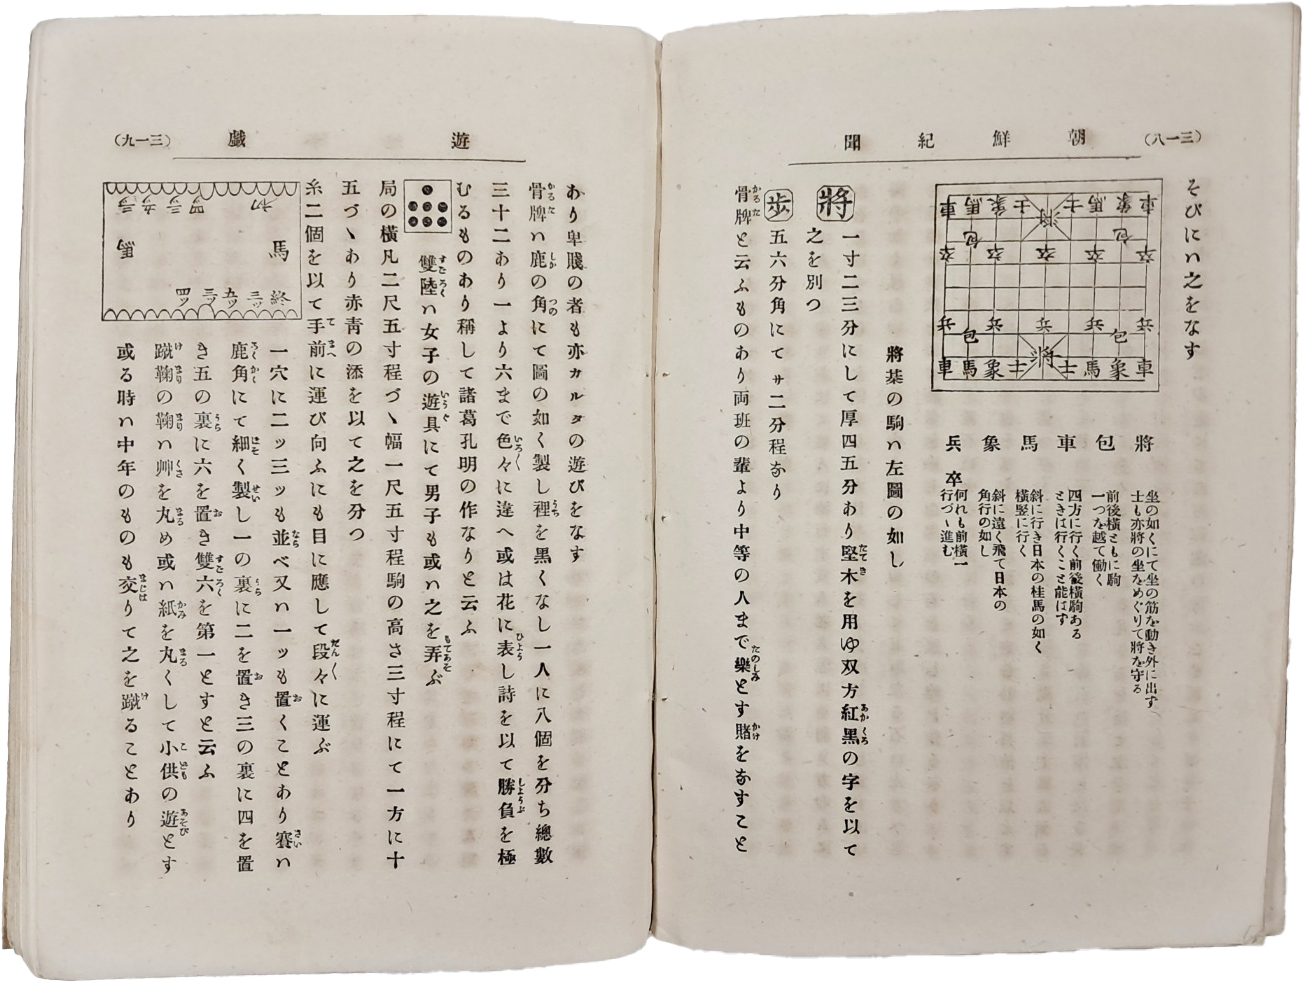 (三一八)
朝鮮紀聞
そびにハ之をなす
車馬象士士馬象車
將
包包
卒卒卒卒卒
兵兵兵兵兵
包包
將
車馬象士士馬象車
將
坐の如くにて坐の筋を動き外に出ず
士も亦將の坐をめぐりて將を守る
包
前後橫ともに駒
一つを越て働く
車
四方に行く前後橫駒ある
ときは行くこと能はず
馬
斜に行き日本の桂馬の如く
橫竪に行く
象
斜に遠く飛て日本の
角行の如し
兵
卒
何れも前橫一
行づゝ進む
將棊の駒ハ左圖の如し
將
一寸二三分にして厚四五分あり堅木を用ゆ双方紅黑の字を以て
之を別つ
歩
五六分角にてサ二分程なり
骨牌と云ふものあり両班の輩より中等の人まで樂とす賭をなすこと
(三一九)
遊戯
あり卑賤の者も亦カルタの遊びをなす
骨牌ハ鹿の角にて圖の如く製し裡を黒くなし一人に八個を分ち總數
三十二あり一より六まで色々に違へ或は花に表し詩を以て勝負を極
むるものあり稱して諸葛孔明の作なりと云ふ
雙陸ハ女子の遊具にて男子も或ハ之を弄ぶ
局の橫凡二尺五寸程づゝ幅一尺五寸程駒の高さ三寸程にて一方に十
五づゝあり赤青の漆を以て之を分つ
糸二個を以て手前に運び向ふにも目に應して段々に運ぶ
初
馬
馬
終
一穴に二ッ三ッも並べ又ハ一ッも置くことあり賽ハ
鹿角にて細く製し一の裏に二を置き三の裏に四を置
き五の裏に六を置き雙六を第一とすと云ふ
蹴鞠の鞠ハ艸を丸め或ハ紙を丸くして小供の遊とす
或る時ハ中年のものも交りて之を蹴ることあり